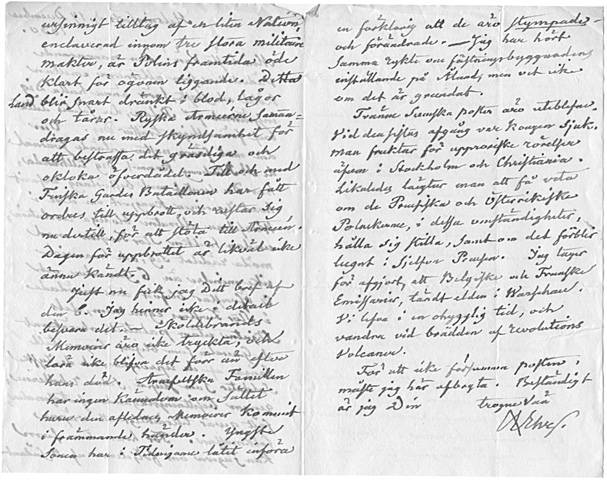 ursinnigt tilltag af en liten Nation,
enclaverad innom tre stora militaire
makter, är Polens framtida öde
klart för ögonen liggande. Detta
land blir snart dränkt i blod, lågor
och tårar. Ryska Armeerna samman-
dragas nu med skyndsamhet för
att bestraffa det grundliga och
okloka öfverdådet. Till och med
Finska Gardes Bataillonen har fått
ordres till uppbrott, och rustar sig
nu dertill, för att stöta till Armeen.
Dagen för uppbrottet är likväl icke
ännu känd.
Just nu fick jag Ditt bref af
den 6. Jag hinner icke i detail
besvara det. — Skjöldebrands
Memoirer äro icke tryckta, och
lära icke blifva det förr än efter
hans död. Armfeltska Familien
har ingen kännedom om sättet
huru den aflednes Memoirer kommit
i främmande händer. Yngste
Sonen har i Tidningarne låtit införa
en förklaring att de äro stympade
och förändrade. — Jag har hört
samma rykte om fästningsbyggnadens
inställande på Åland, men vet icke
om det är grundat.
Tvänne Svenska poster äro uteblefne.
Vid den sistas afgång var Konungen sjuk.
Man fruktar för upproriske rörelser
äfven i Stockholm och Christiania.
Likaledes längtar man att få veta
om de Preussiske och Österrikiske
Polackerne, i dessa omständigheter,
hålla sig stilla, samt om det förblir
lugnt i sjelfva Preussen. Jag tager
för afgjort, att Belgiske och Franske
Emissarier, tändt elden i Warschau.
Vi lefva i en ohygglig tid, och
vandra vid brädden af revolutions
Volcaner.
För att icke försumma posten,
måste jag här afbryta. Beständigt
är jag Din trogne Vän